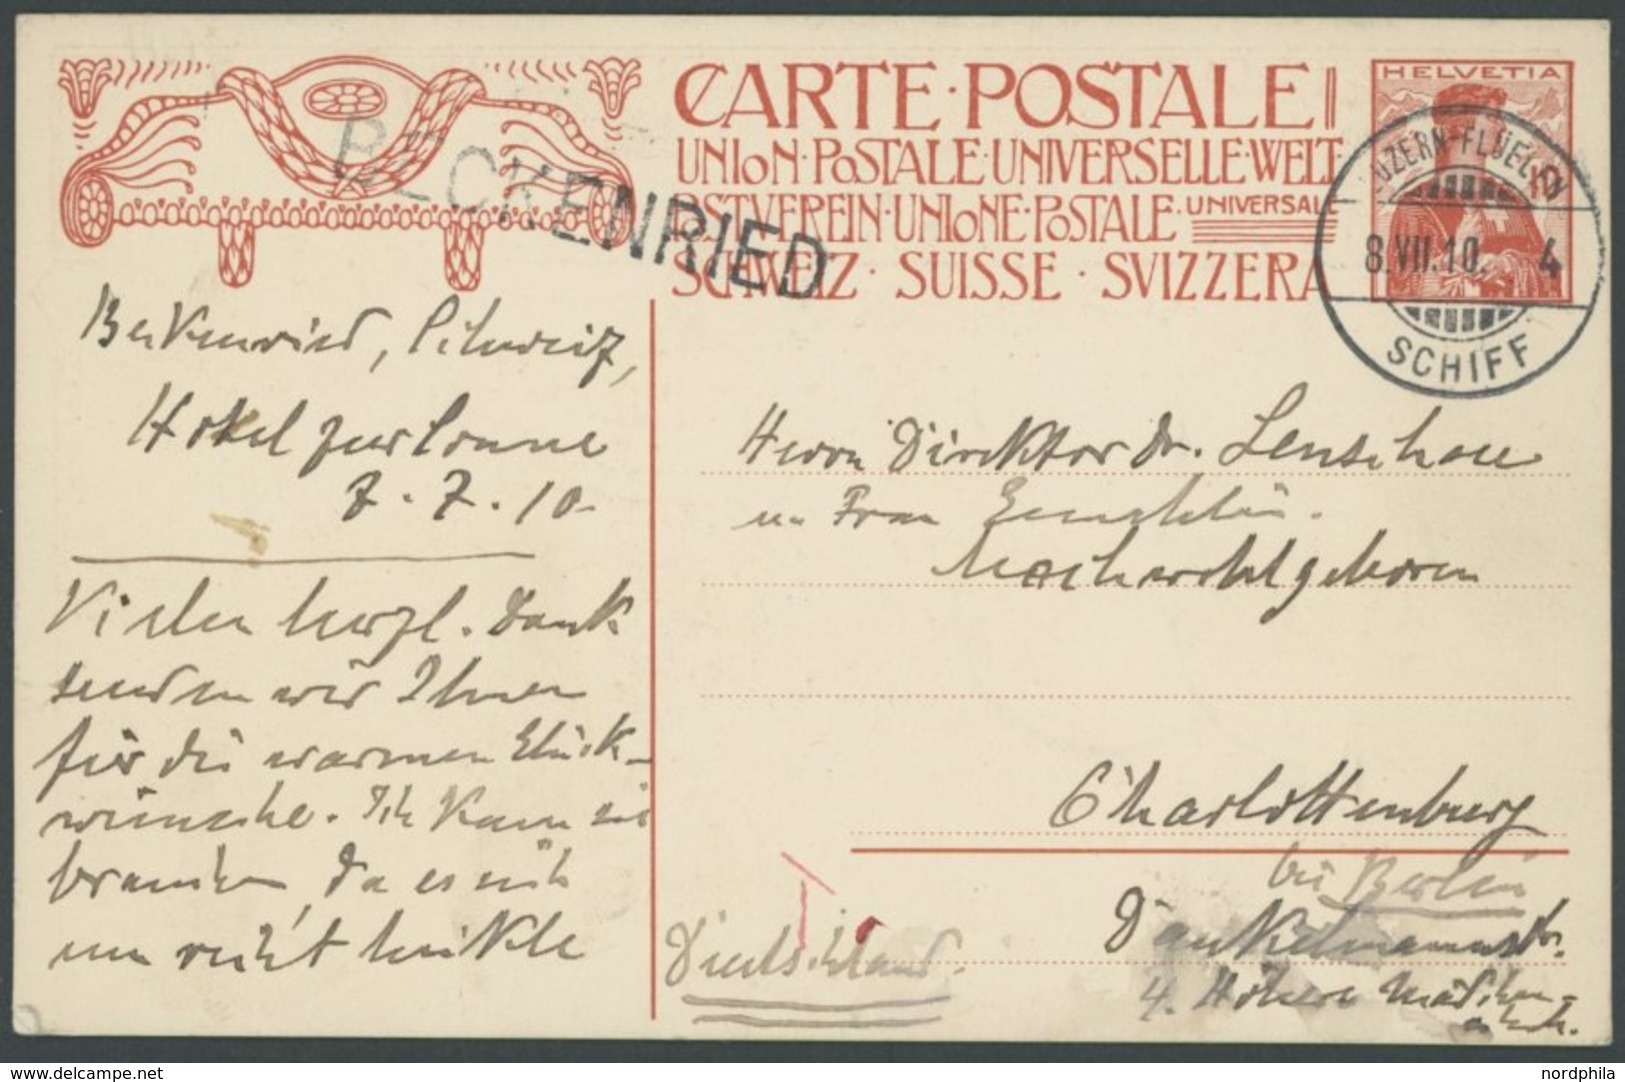 CARTE·POSTALE
UNION·POSTALE·UNIVERSELLE·WELT
POSTVEREIN·UNIONE·POSTALE·UNIVERSALE
SCHWEIZ · SUISSE · SVIZZERA
HELVETIA
LUZERN-FLÜELEN
8.VII.10. 4
SCHIFF
BECKENRIED
Beckenried, Schweiz,
Hotel zur Sonne
7.7.10.
Vielen herzl. Dank
senden wir Ihnen
für die warmen Glück-
wünsche. Ich kann sie
brauchen, da es mit
mir nicht
Herrn Direktor Dr. Lenschau
u. Frau Gemahlin.
Hochwohlgeboren
Charlottenburg
bei Berlin
Dankelmannstr.
4. Höhere Mädchen-
sch.
Deutschland.
nordphila
www.delcampe.net